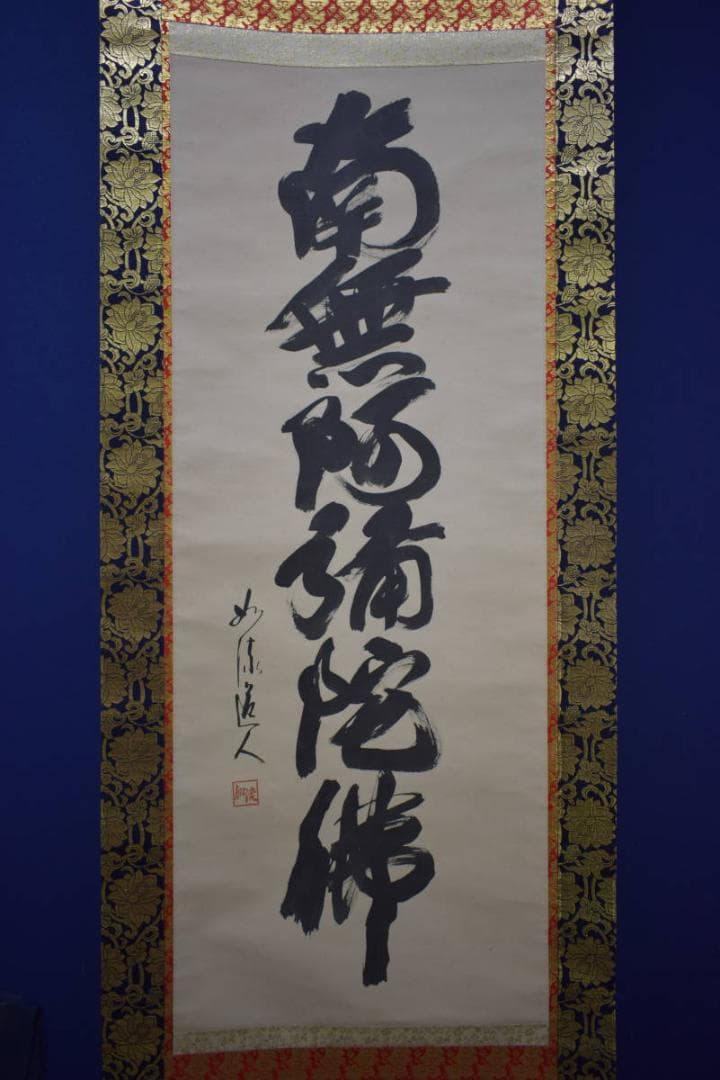 南無阿彌陀佛
如流道人